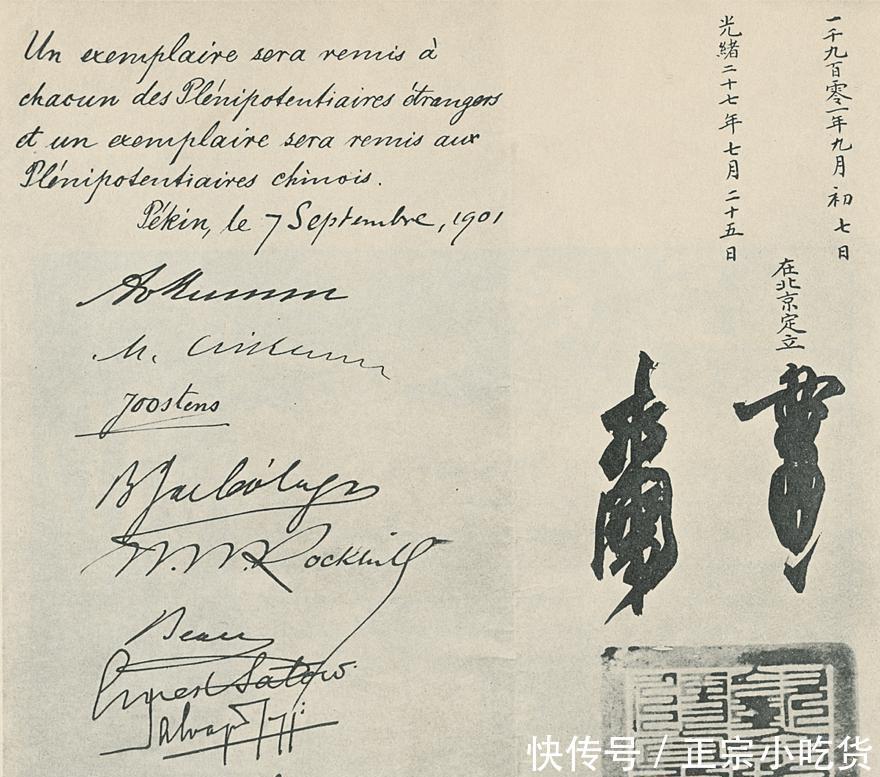 Un exemplaire sera remis à
chacun des Plénipotentiaires étrangers
et un exemplaire sera remis aux
Plénipotentiaires chinois.
Pékin, le 7 Septembre, 1901
Joostens
W. W. Rockhill
Beau
Ernest Satow
Salvago
一千九百零一年九月初七日
在北京定立
光緒二十七年七月二十五日
快传号 / 正宗小吃货